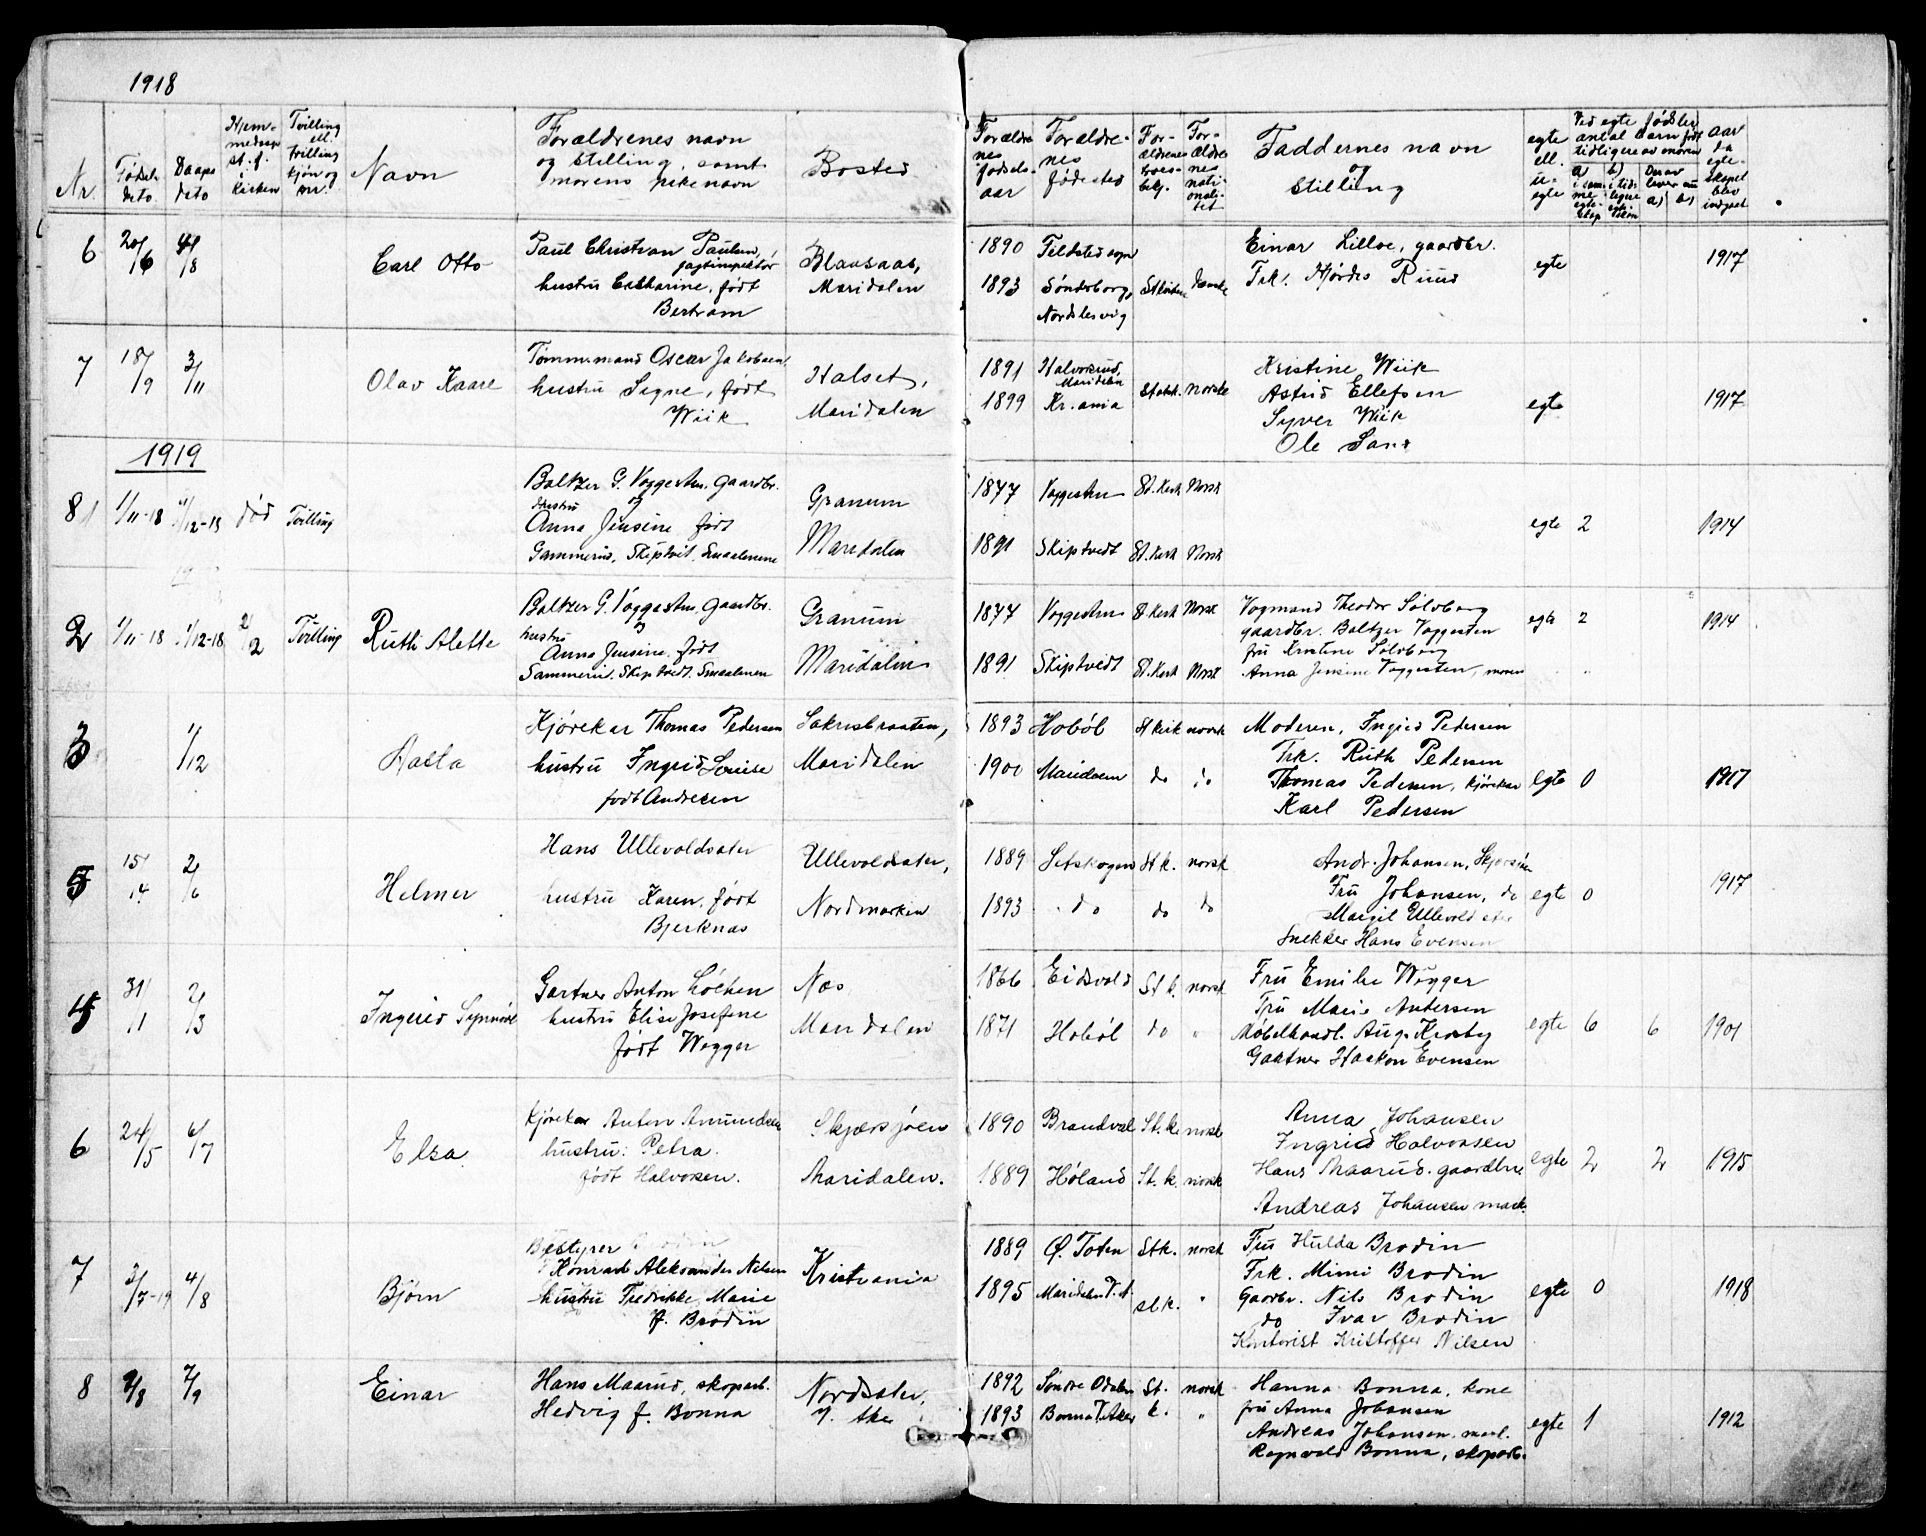 1918
Nr. Fødsels dato Daaps dato Hjemmedaap st. f. i kirken Tvilling ell. trilling kjøn og nr. Navn Forældrenes navn og stilling, samt morens pikenavn Bosted Forældrenes fødselsaar Forældrenes fødested Forældrenes troesbekj. Forældrenes nationalitet Faddernes navn og stilling egte ell. uegte Ved egte fødsler antal barn født tidligere av moren a) i samme egteskap b) i tidligere egteskap Derav lever nu a) b) aar da egteskapet blev indgaat
6 20/6 4/8 Carl Otto
Paul Christian Paulsen, jagtinspektør
hustru Catharine, født
Bertram
Blaasaas,
Maridalen
1890
1893 Sönderborg, Nordslesvig Danske
Einar Lilloe, gaardbr.
Frk. Hjørdis Ruud
egte 1917
7 18/9 3/11 Olav Kaare
Tømmermand Oscar Jakobsen
hustru Signe, født
Wiik
Halset,
Maridalen
1891 Halvorsrud, Maridalen
1899 Kr.ania Statsk. Norske
Kristine Wiik
Astrid Ellefsen
Syver Wiik
Ole Sand
egte 1917
1919
81 1/11-18 1/12-18 død Tvilling
Baltzer G. Voggesten, gaardbr.
og
hustru
Anna Jensine født
Gammerud, Skiptvet, Smaalenene
Granum
Maridalen
1877 Voggesten St.kirk Norsk
1891 Skiptvedt St.kirk Norsk
egte 2 1914
2 1/11-18 1/12-18 2/2 Tvilling Ruth Alette
Baltzer G. Voggesten, gaardbr.
og
hustru
Anna Jensine, født
Gammerud, Skiptvedt, Smaalenene
Granum
Maridalen
1877 Voggesten St.kirk Norsk
1891 Skiptvedt St.kirk Norsk
Vogmand Theodor Solvborg
gaardbr. Baltzer Voggesten
fru Kristine Solvborg
Anna Jensine Voggesten, moren
egte 2 1914
3 1/12 Aasta
Kjørekar Thomas Pedersen
hustru Ingrid Louise
født Andresen
Sakrisbraaten,
Maridalen
1893 Hobøl St kirk norsk
1900 Maridalen do do
Moderen, Ingrid Pedersen
Frk. Ruth Pedersen
Thomas Pedersen, kjørekar
Karl Pedersen
egte 0 1917
5 15/4 2/6 Helmer
Hans Ullevoldsæter
hustru Karen, født
Bjerknæs
Ullevoldsæter,
Nordmarken
1889 Setskogen St k. norsk
1893 do do do
Andr. Johansen, Skjærsjøen
Fru Johansen, do
Margit Ullevoldsæter
Snekker Hans Evensen
egte 0 1917
4 31/1 2/3 Ingerid Synnøve
Gartner Anton Løchen
hustru Elise Josefine
født Wegger
Næs
Maridalen
1866 Eidsvold St k. norsk
1871 Hobøl do "
Fru Emilie Wegger
Fru Marie Andersen
Møbelhandl. Aug. Krosby
Gartner Haakon Evensen
egte 6 6 1901
6 24/5 6/7 Elsa
Kjørekar Anton Amundsen
hustru: Petra.
født Halvorsen.
Skjærsjøen
Maridalen.
1890 Brandval St. k. norsk
1889 Høland St. k. norsk
Anna Johansen
Ingrid Halvorsen
Hans Maarud. gaardbru
Andreas Johansen mask.
egte 2 2 1915
7 3/7-19 4/8 Bjørn
Bestyrer
Konrad Aleksander Nilsen
hustru Fredrikke Marie
f. Brodin
Kristiania
1889 Ø. Toten Stk. norsk
1895 Maridalen V. A. st.k. "
Fru Hulda Brodin
Frk. Mimi Brodin
Gaardbr. Nils Brodin
do Ivar Brodin
Kontorist Kristoffer Nilsen
egte 0 1918
8 9/8 7/9 Einar
Hans Maarud, skogarb.
Hedvig f. Bonna
Nordsæter,
V. Aker
1892 Søndre Odalen St. norsk
1893 Bonna V. Aker k. "
Hanna Bonna, kone
fru Anna Johansen
Andreas Johansen, mask.
Ragnvald Bonna, skogarb.
egte 1 1912